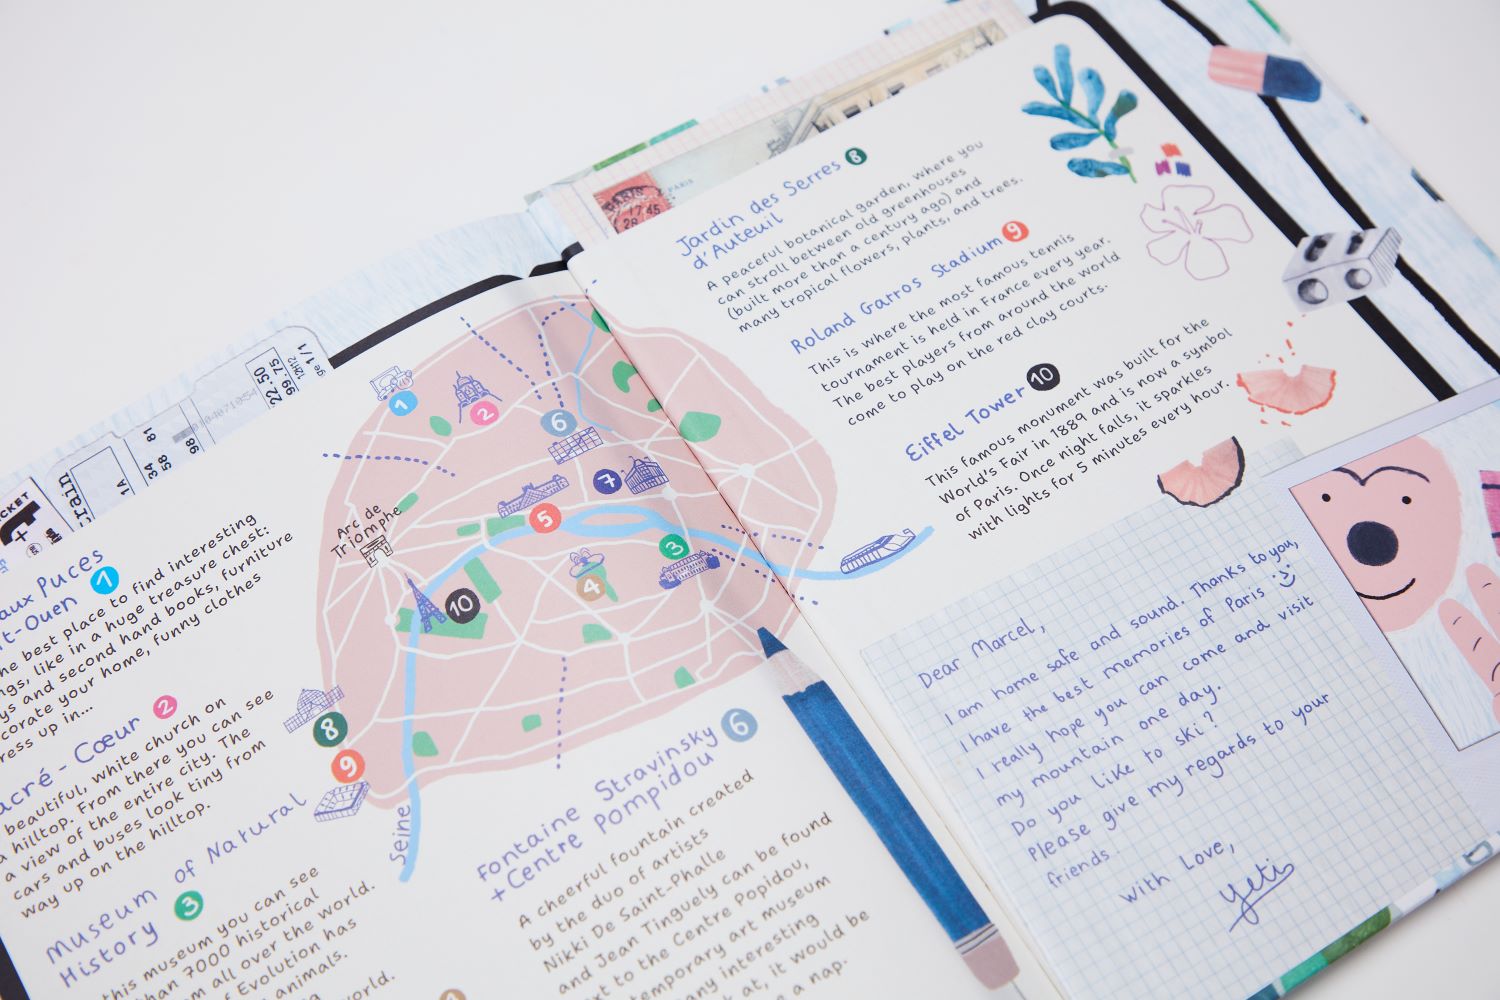 22.50
99.75
1/1
81
98
58
34
1A
train
aux Puces
t-Ouen 1
he best place to find interesting
ngs, like in a huge treasure chest:
ys and second hand books, furniture
corate your home, funny clothes
ress up in...
acré-Cœur 2
beautiful, white church on
a hilltop. From there you can see
a view of the entire city. The
cars and buses look tiny from
way up on the hilltop.
Museum of Natural
History 3
this museum you can see
than 7000 historical
m all over the world.
f Evolution has
animals.
world.
1
2
6
7
5
3
4
10
8
9
Arc de
Triomphe
Seine
Fontaine Stravinsky
+ Centre Pompidou 6
A cheerful fountain created
by the duo of artists
Nikki De Saint-Phalle
and Jean Tinguely can be found
xt to the Centre Popidou,
temporary art museum
any interesting
at, it would be
a nap.
PARIS
17 45
28
PARIS
Jardin des Serres 8
d'Auteuil
A peaceful botanical garden, where you
can stroll between old greenhouses
(built more than a century ago) and
many tropical flowers, plants, and trees.
Roland Garros Stadium 9
This is where the most famous tennis
tournament is held in France every year.
The best players from around the world
come to play on the red clay courts.
Eiffel Tower 10
This famous monument was built for the
World's Fair in 1889 and is now a symbol
of Paris. Once night falls, it sparkles
with lights for 5 minutes every hour.
Dear Marcel,
I am home safe and sound. Thanks to you,
I have the best memories of Paris :)
I really hope you can come and visit
my mountain one day.
Do you like to ski?
Please give my regards to your
friends.
With love,
Yeti